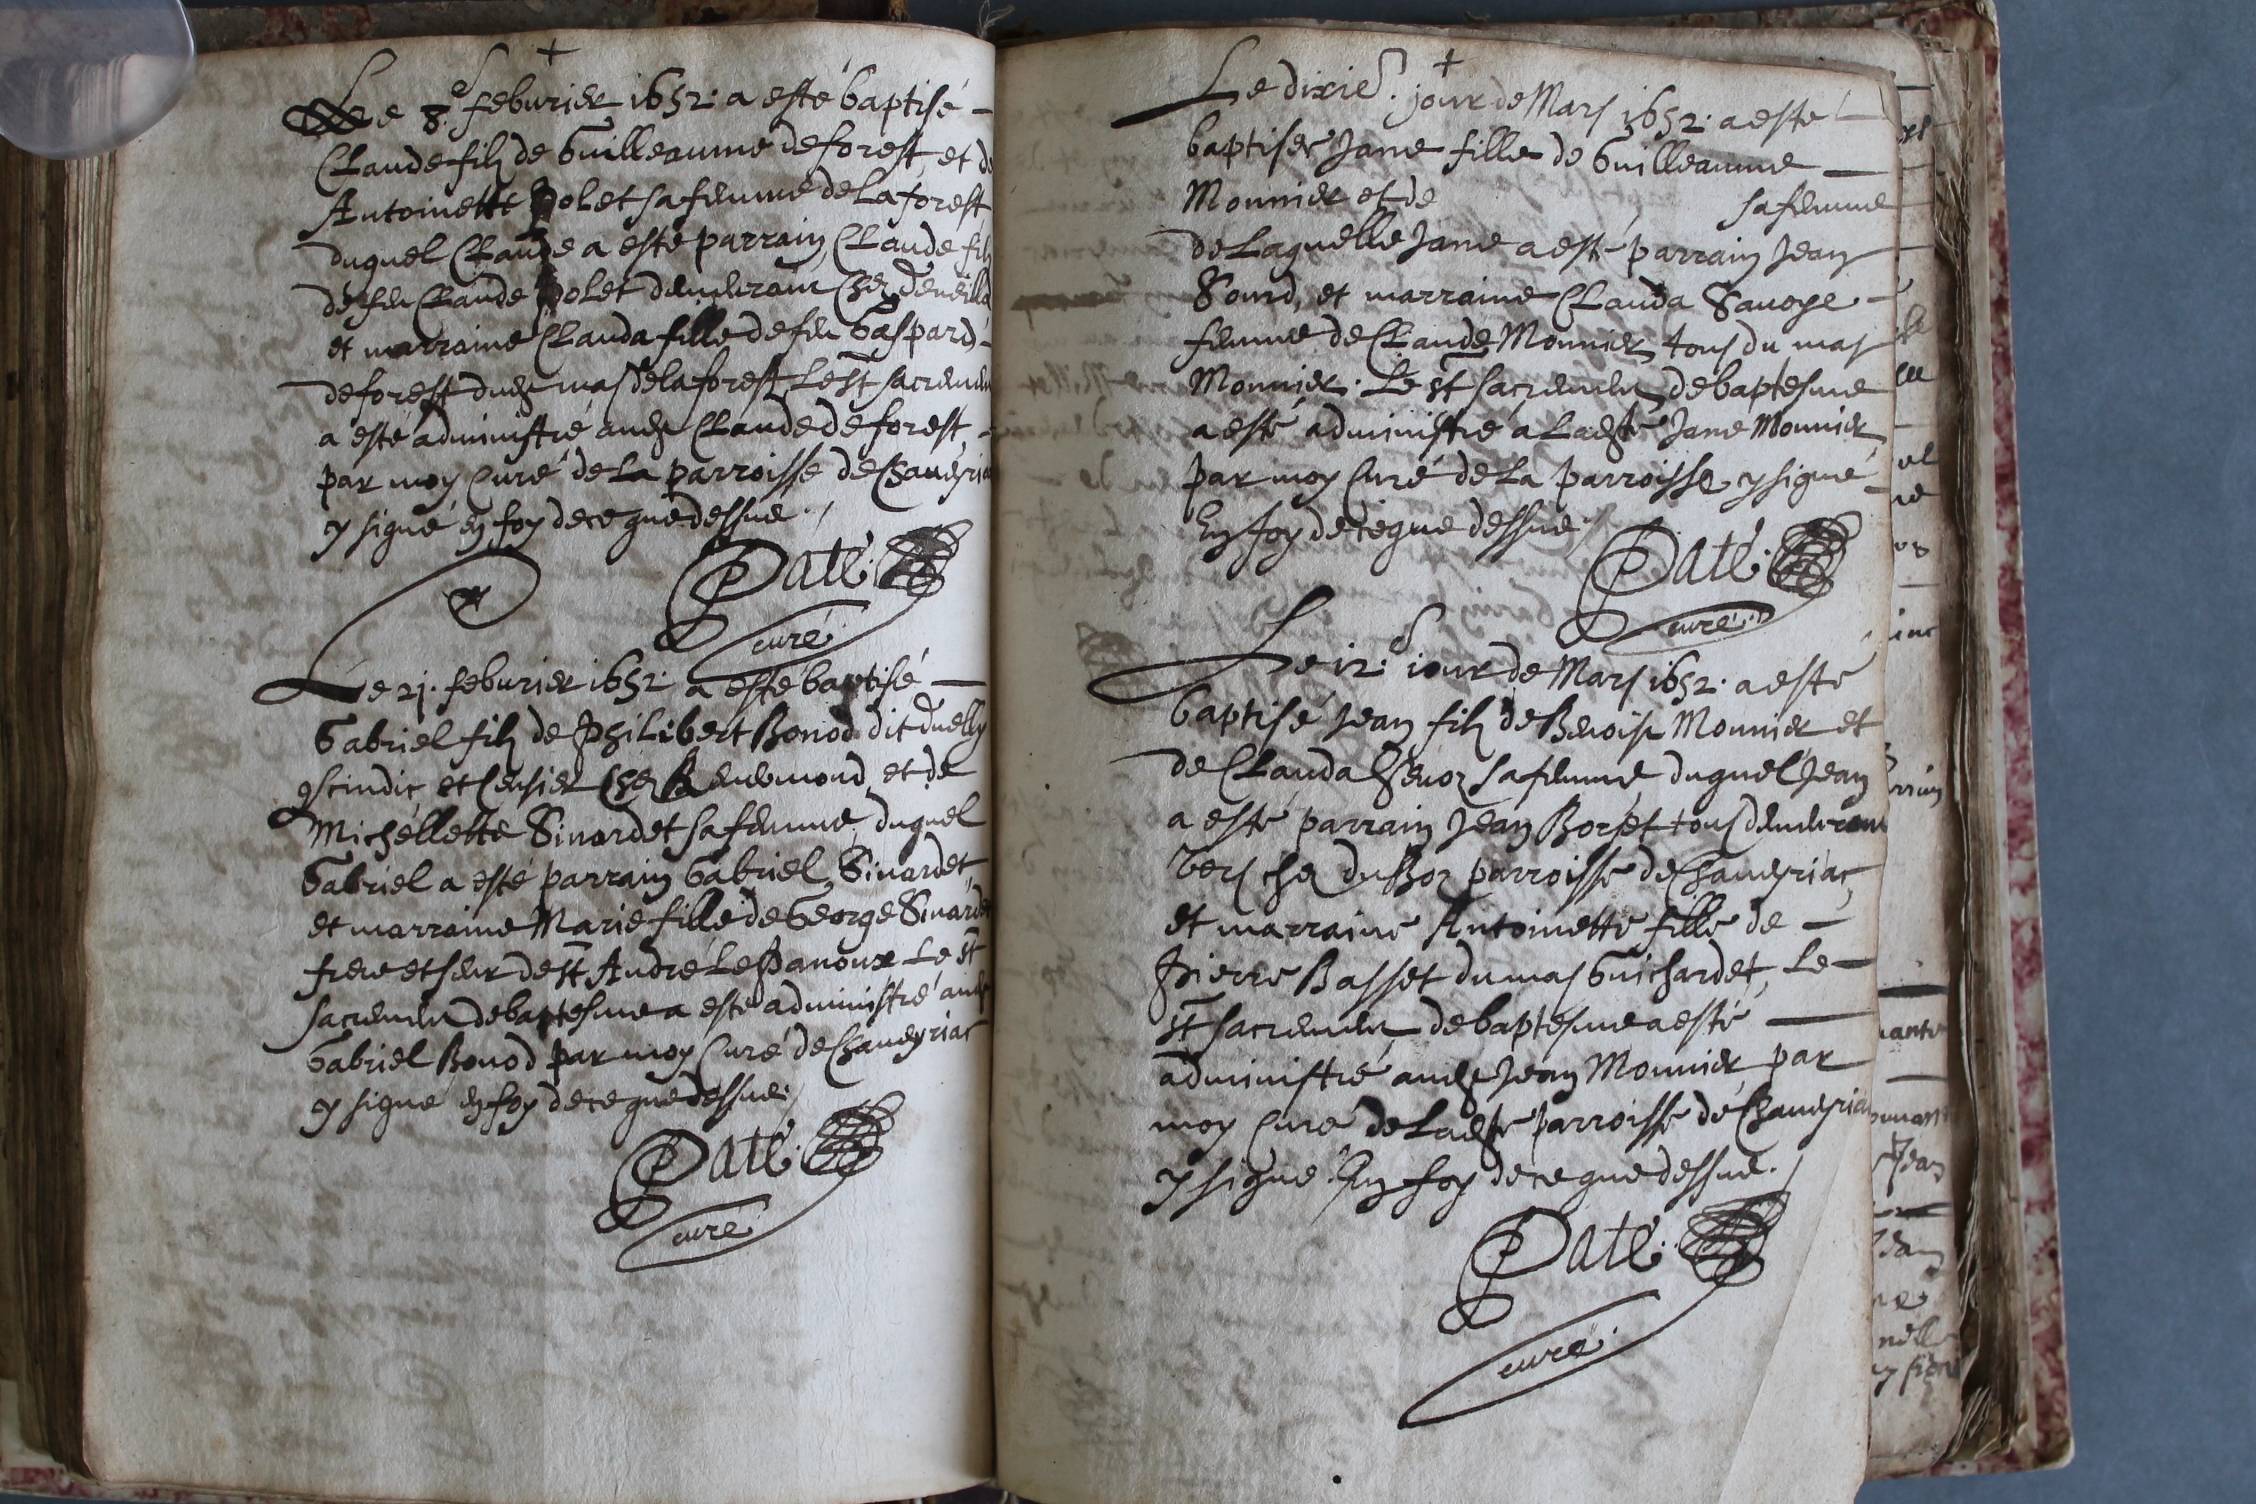 Le 8.e feburier 1652. a esté baptisé
Claude filz de Guilleaume deforest, et de
Antoinette Polet sa femme de Laforest
duquel Claude a esté parrain Claude filz
de feu Claude Polet demeurant Chez
et marraine Clauda fille de feu Gaspard
deforest dudt mas delaforest, Le st sacremen
a esté administré audt Claude deforest
par moy Curé de La parroisse de Chaveyria
y signé en foy de ce que dessus.
Paté
curé
Le 21. feburier 1652. a esté baptisé
Gabriel filz de Philibert Bonod dit
scindic, et Censier Chez et de
Michellette Sinardet sa femme, duquel
Gabriel a esté parrain Gabriel Sinardet,
et marraine Marie fille de George Sinardet
frere et seur de st André Le Panoux Le st
sacrement de baptesme a esté administré audt
Gabriel Bonod par moy Curé de Chaveyriac
y signé en foy de ce que dessus.
Paté
curé
Le dixie. jour de Mars 1652. a esté
baptisee Jane fille de Guilleaume
Monnier et de sa femme
de Laquelle Jane a esté parrain Jean
Sourd, et marraine Clauda Savoye
femme de Claude Monnier tous du mas
Monnier. Le st sacrement de baptesme
a esté administré a Ladte Jane Monnier
par moy Curé de La parroisse y signé
En foy de ce que dessus
Paté
curé
Le 12.e iour de Mars 1652. a esté
baptisé Jean filz de Benoist Monnier et
de Clauda sa femme, duquel Jean
a esté parrain Jean tous demeurant
Vers chez du Boz parroisse de Chaveyriac,
et marraine Antoinette fille de
Pierre Basset du mas Guichardet, Le
st sacrement de baptesme a esté
administré audt Jean Monnier par
moy Curé de Ladte parroisse de Chaveyria
y signé En foy de ce que dessus.
Paté
curé